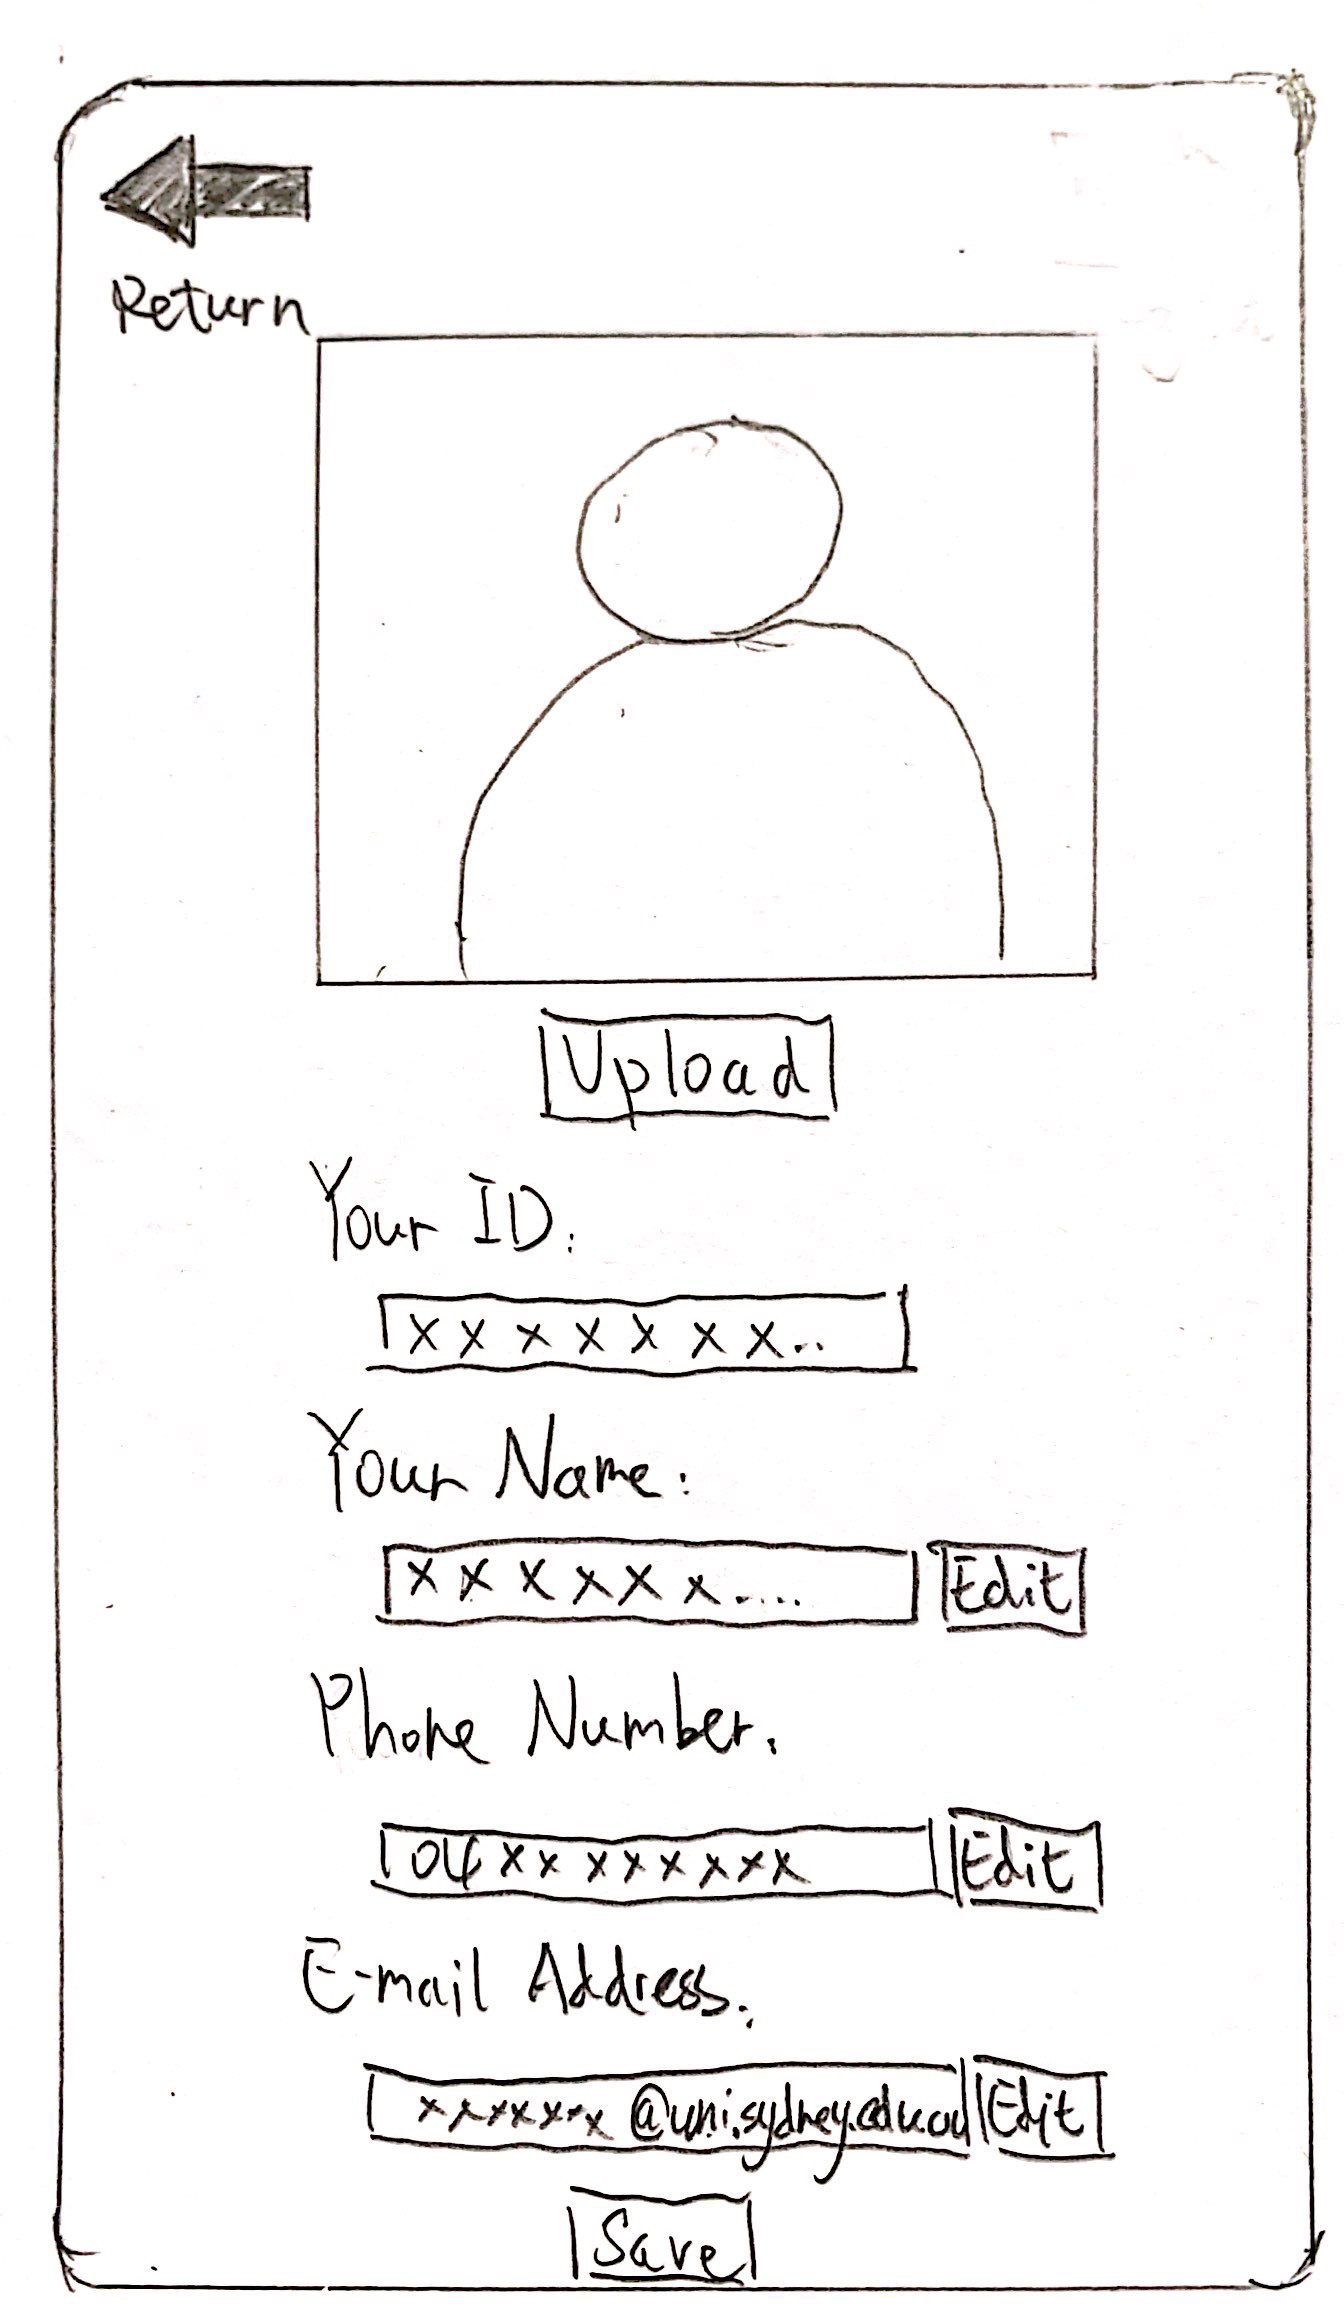 Return
Upload
Your ID:
x x x x x x x..
Your Name:
x x x x x x.... Edit
Phone Number:
04xx xxxxxx Edit
E-mail Address:
xxxxxxx @uni.sydney.edu.au Edit
Save